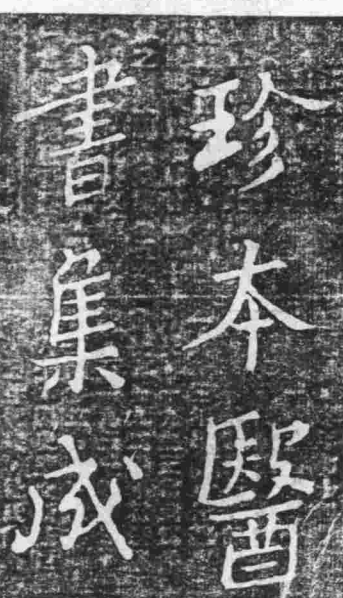 珍本醫
書集成